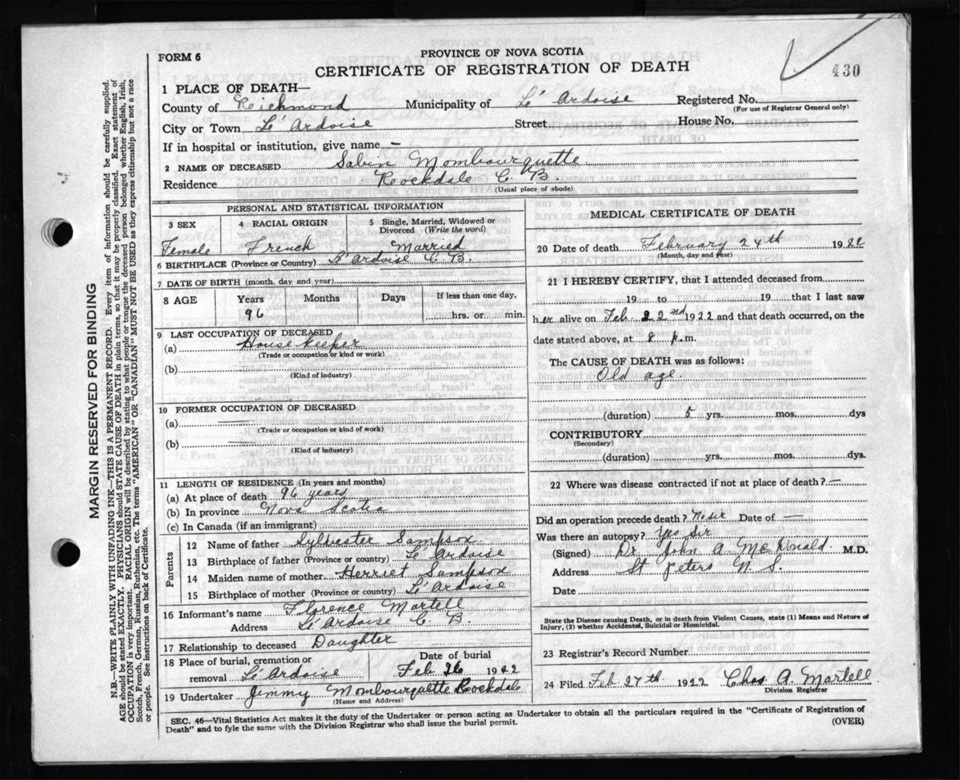 PROVINCE OF NOVA SCOTIA
FORM 6
CERTIFICATE OF REGISTRATION OF DEATH
430
1 PLACE OF DEATH—
County of Reichmond Municipality of Le' Ardoise Registered No.
(For use of Registrar General only)
City or Town Le' Ardoise Street House No.
If in hospital or institution, give name –
2 NAME OF DECEASED Sabin Mombourquette
Residence Rockdale C. B.
(Usual place of abode)
PERSONAL AND STATISTICAL INFORMATION
3 SEX 4 RACIAL ORIGIN 5 Single, Married, Widowed or Divorced (Write the word)
Female French Married
6 BIRTHPLACE (Province or Country) Le' Ardoise C. B.
7 DATE OF BIRTH (month, day and year)
8 AGE Years Months Days If less than one day,
96 hrs. or min.
9 LAST OCCUPATION OF DECEASED
(a) House keeper
(Trade or occupation or kind or work)
(b)
(Kind of industry)
10 FORMER OCCUPATION OF DECEASED
(a)
(Trade or occupation or kind of work)
(b)
(Kind of industry)
11 LENGTH OF RESIDENCE (In years and months)
(a) At place of death 96 years
(b) In province Nova Scotia
(c) In Canada (if an immigrant)
Parents
12 Name of father Sylvester Sampsox
13 Birthplace of father (Province or country) Le' Ardoise
14 Maiden name of mother Herriet Sampsox
15 Birthplace of mother (Province or country) Le' Ardoise
16 Informant's name Florence Martell
Address Le' Ardoise C. B.
17 Relationship to deceased Daughter
18 Place of burial, cremation or removal Le' Ardoise Date of burial Feb 26 1922
19 Undertaker Jimmy Mombourquette Rockdale
(Name and Address)
MEDICAL CERTIFICATE OF DEATH
20 Date of death February 24th 1922
(Month, day and year)
21 I HEREBY CERTIFY, that I attended deceased from
19 to 19 that I last saw
her alive on Feb 22nd 1922 and that death occurred, on the
date stated above, at 8 p.m.
The CAUSE OF DEATH was as follows:
Old age.
(duration) 5 yrs. mos. dys
CONTRIBUTORY
(Secondary)
(duration) yrs. mos. dys.
22 Where was disease contracted if not at place of death? –
Did an operation precede death? No sir Date of –
Was there an autopsy? Yes Sir
(Signed) Dr. John A McDonald M.D.
Address St Peters N. S.
Date
State the Disease causing Death, or in death from Violent Causes, state (1) Means and Nature of Injury, (2) whether Accidental, Suicidal or Homicidal.
23 Registrar's Record Number
24 Filed Feb 27th 1922 Chas A. Martell
Division Registrar
SEC. 46—Vital Statistics Act makes it the duty of the Undertaker or person acting as Undertaker to obtain all the particulars required in the "Certificate of Registration of
Death" and to fyle the same with the Division Registrar who shall issue the burial permit. (OVER)
MARGIN RESERVED FOR BINDING
N.B.—WRITE PLAINLY WITH UNFADING INK—THIS IS A PERMANENT RECORD. Every item of information should be carefully supplied.
AGE should be stated EXACTLY. PHYSICIANS should STATE CAUSE OF DEATH in plain terms, so that it may be properly classified. Exact statement of
OCCUPATION is very important. RACIAL ORIGIN will be described by stating to what people or tongue the deceased person belonged whether English, Irish,
Scotch, French, German, Russian, Ruthenian, etc. The terms "AMERICAN" OR "CANADIAN" MUST NOT BE USED as they express citizenship but not a race
or people. See instructions on back of Certificate.